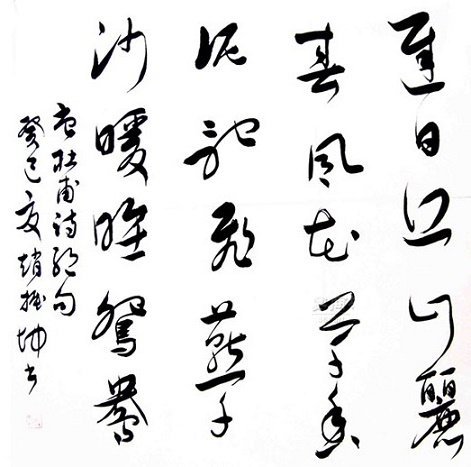 遲日江山麗
春风花草香
泥融飛燕子
沙暖睡鴛鴦
唐杜甫诗绝句
癸巳夏趙振坤书